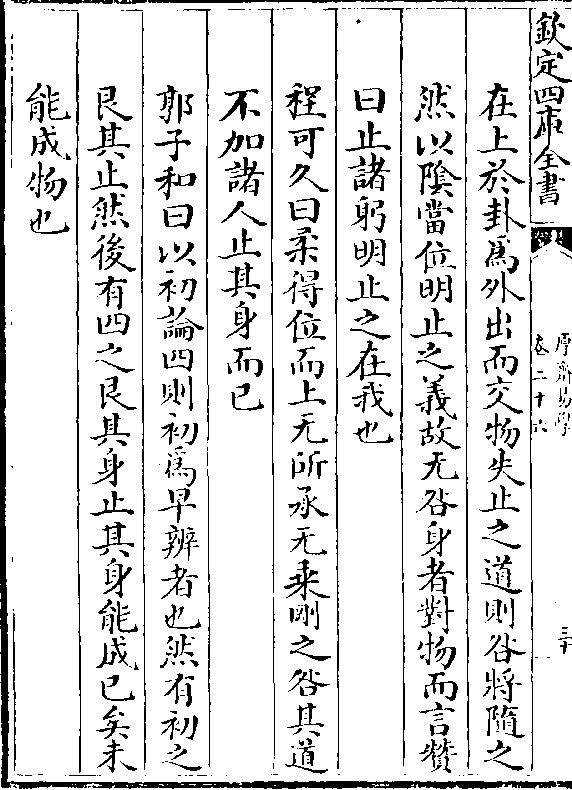 欽定四庫全書
厚齋易學
卷二十六
三十
在上於卦爲外出而交物失止之道則咎將隨之
然以陰當位明止之義故无咎身者對物而言贊
曰止諸躬明止之在我也
程可久曰柔得位而上无所承无乗剛之咎其道
不加諸人止其身而已
郭子和曰以初論四則初爲早辨者也然有初之
艮其止然後有四之艮其身止其身能成己矣未
能成物也